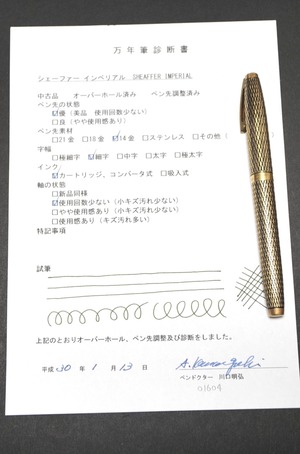 万年筆診断書
シェーファー インペリアル SHEAFFER IMPERIAL
中古品 オーバーホール済み ペン先調整済み
ペン先の状態
☑優(美品 使用回数少ない)
□良(やや使用感あり)
ペン先素材
□21金 □18金 ☑14金 □ステンレス □その他(
字幅
□極細字 ☑細字 □中字 □太字 □極太字
インク
☑カートリッジ、コンバータ式 □吸入式
軸の状態
□新品同様
☑使用回数少ない(小キズ汚れ少ない)
□やや使用感あり(小キズ汚れ少ない)
□使用感あり(キズ汚れ多い)
特記事項
試筆
上記のとおりオーバーホール、ペン先調整及び診断をしました。
平成 30 年 1 月 13 日
ペンドクター 川口明弘
01604